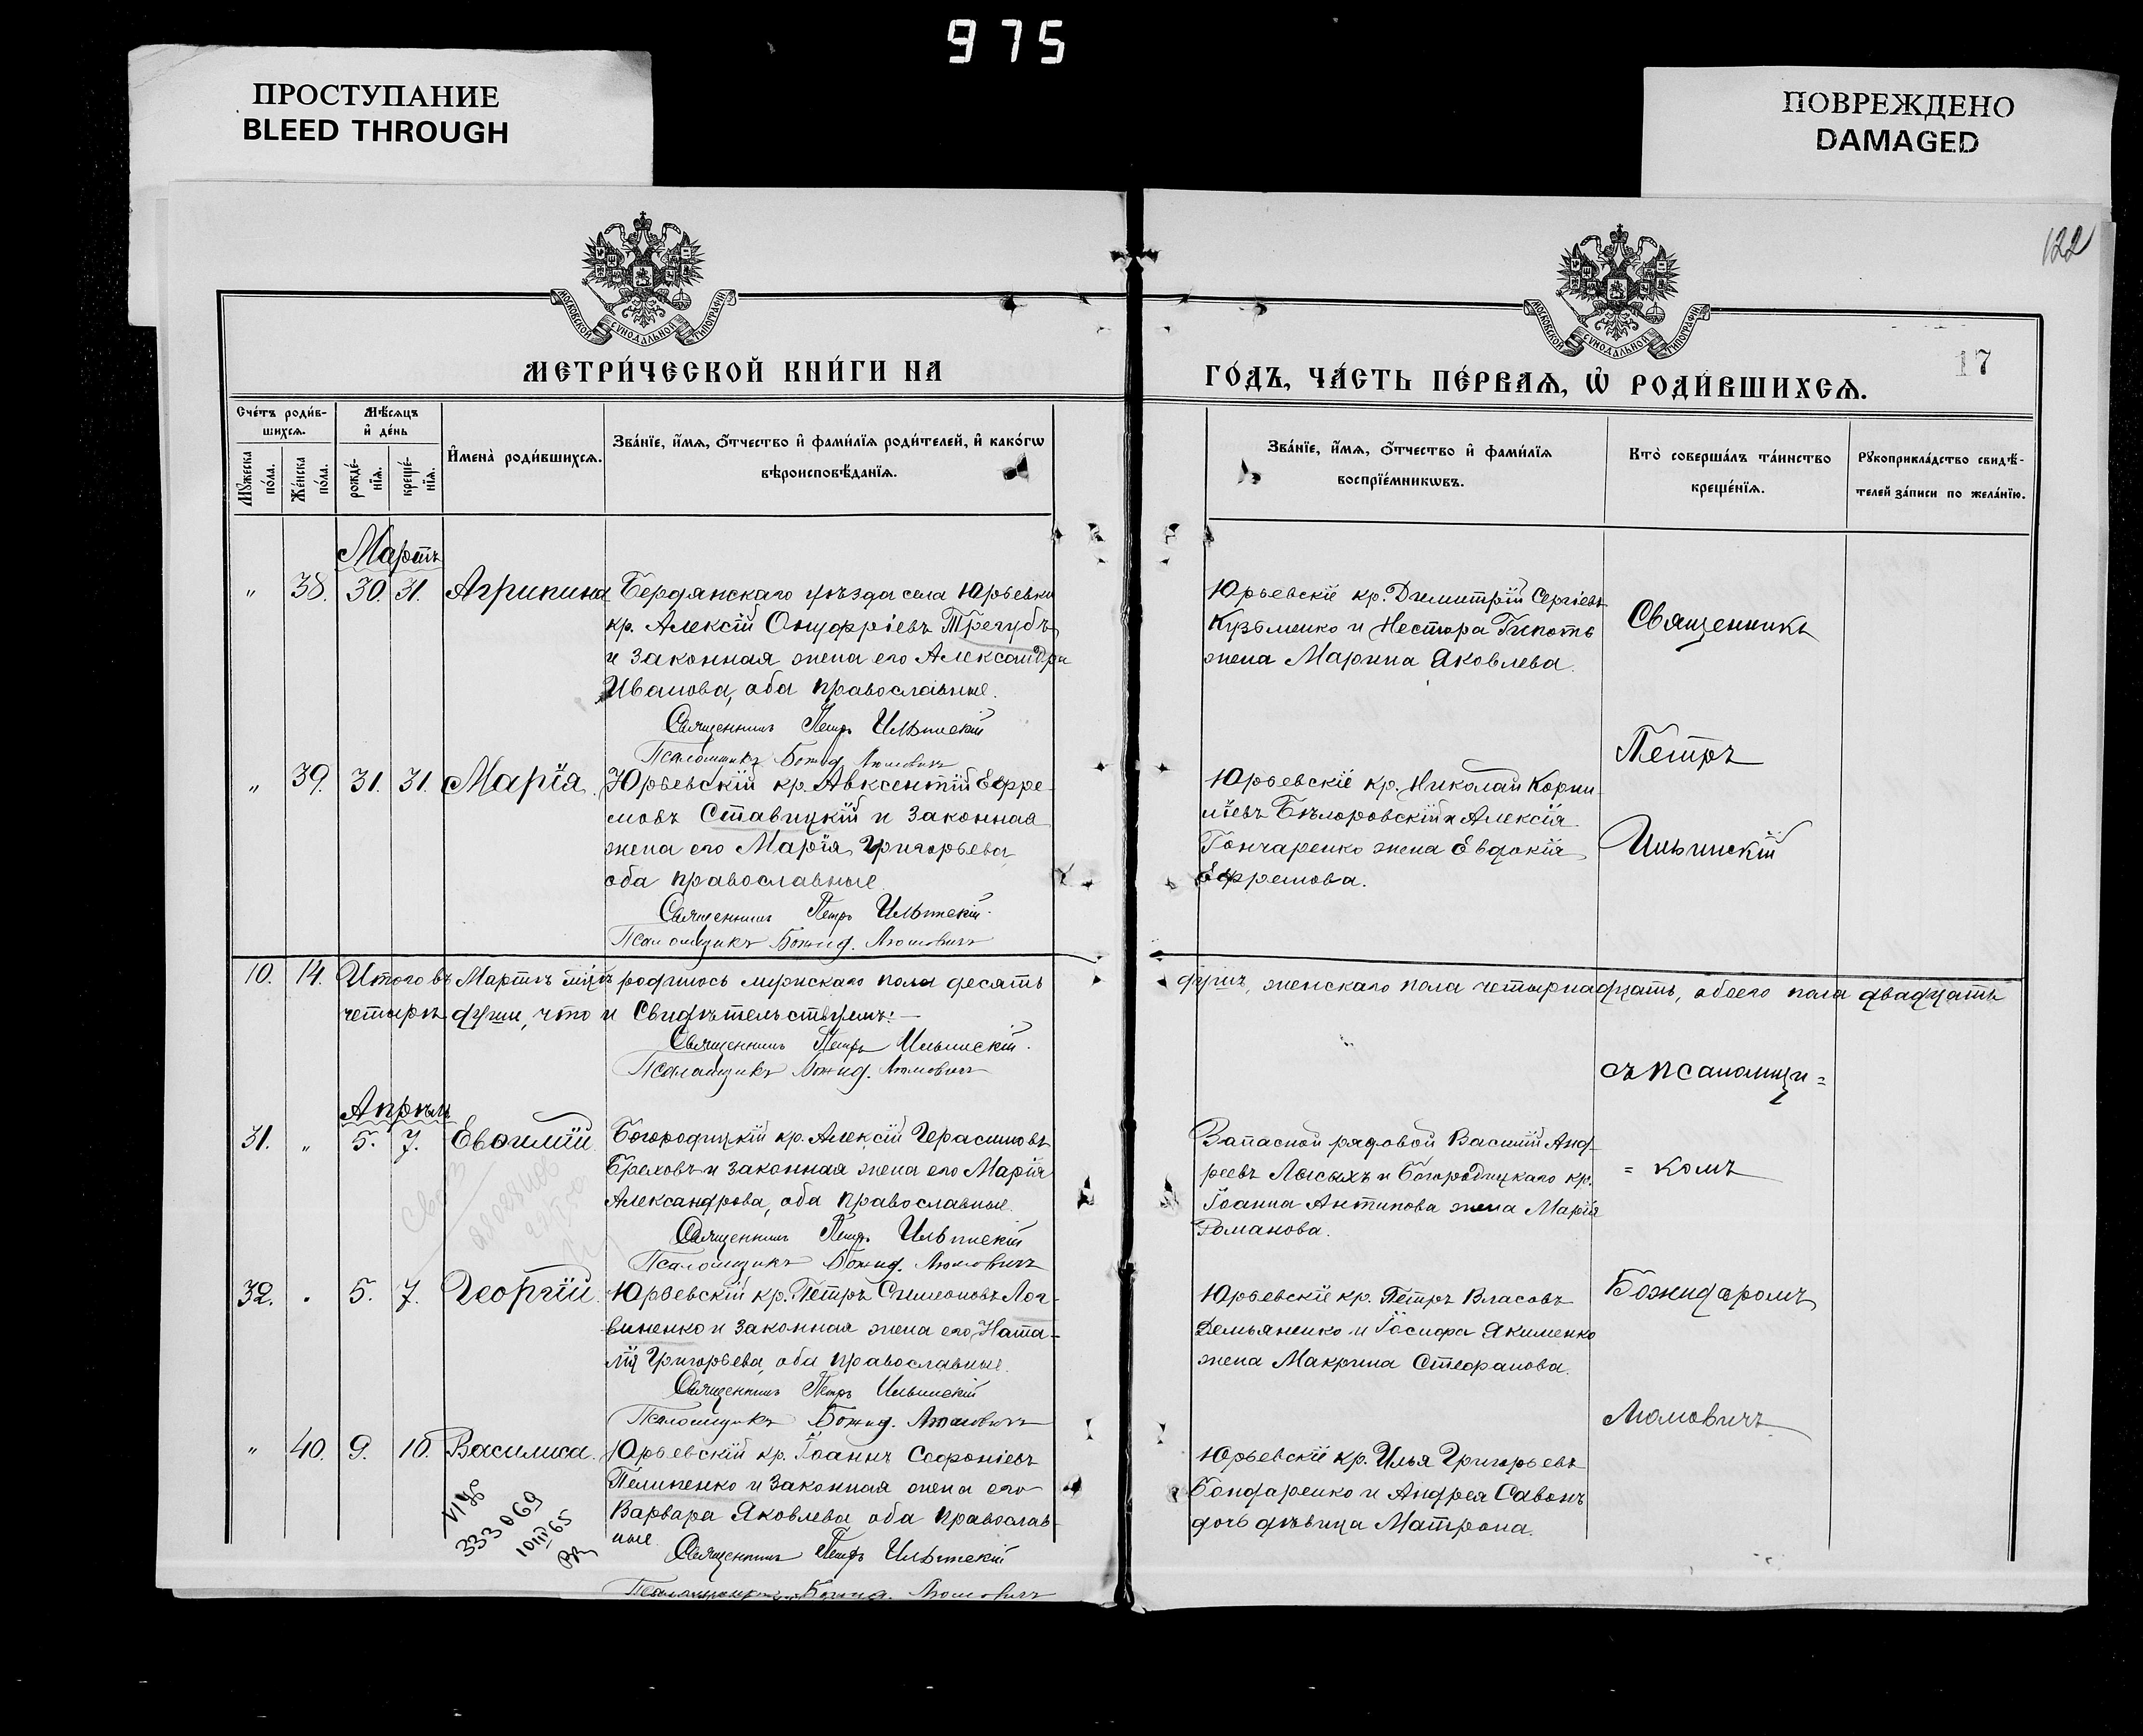 975
ПРОСТУПАНИЕ
BLEED THROUGH
ПОВРЕЖДЕНО
DAMAGED
122
МОСКОВСКОЙ СУНОДАЛЬНОЙ ТИПОГРАФІИ
МОСКОВСКОЙ СУНОДАЛЬНОЙ ТИПОГРАФІИ
17
МЕТРИ́ЧЕСКОЙ КНИ́ГИ НА
ГО́ДЪ, ЧА́СТЬ ПЕ́РВАѦ, Ѡ҆ РОДИ́ВШИХСѦ.
Сче́тъ роди́в-
шихсѧ.
Мѣ́сѧцъ
и҆ де́нь
Мꙋ́жеска по́ла.
Же́нска по́ла.
рожде́-нїѧ.
креще́-нїѧ.
И҆мена̀ роди́вшихсѧ.
Зва́нїе, и҆́мѧ, ѻ҆́тчество и҆ фами́лїѧ роди́телей, и҆ како́гѡ
вѣроисповѣ́данїѧ.
Зва́нїе, и҆́мѧ, ѻ҆́тчество и҆ фами́лїѧ
воспрїе́мникѡвъ.
Кто̀ соверша́лъ та́инство
креще́нїѧ.
Рꙋкоприкла́дство свидѣ́-
телей за́писи по жела́нїю.
Мартъ
" 38. 30. 31. Агрипина Бердянскаго уѣзда села Юрьевки
кр. Алексій Онуфріевъ Трегубъ
и законная жена его Александра
Иванова, оба православные.
Священникъ Петръ Ильинскій
Псаломщикъ Божид. Люмовичъ
Юрьевскіе кр. Димитрій Сергіевъ
Кузьменко и Нестора Гипотъ
жена Марина Яковлева.
Священникъ
" 39. 31. 31. Марія. Юрьевскій кр. Авксентій Ефре-
мовъ Ставицкій и законная
жена его Марія Григорьева,
оба православные.
Священникъ Петръ Ильинскій.
Псаломщикъ Божид. Люмовичъ
Юрьевскіе кр. Николай Корни-
ліевъ Бѣлоровскій и Алексія
Гончаренко жена Евдокія
Ефремова.
Петръ
Ильинскій
10. 14. Итого въ Мартѣ мѣс. родилось мужскаго пола десять
душъ, женскаго пола четырнадцать, обоего пола двадцать
четыре души, что и свидѣтельствуемъ:—
Священникъ Петръ Ильинскій.
Псаломщикъ Божид. Люмовичъ
съ псаломщи=
Апрѣль
31. " 5. 7. Евѳимій Богородицкій кр. Алексій Герасимовъ
Бреховъ и законная жена его Марія
Александрова, оба православные.
Священникъ Петръ Ильинскій
Псаломщикъ Божид. Люмовичъ
Запасной рядовой Василій Анд-
реевъ Лысыхъ и Богородицкаго кр.
Іоанна Антипова жена Марія
Романова.
= комъ
32. . 5. 7. Георгій. Юрьевскій кр. Петръ Симеоновъ Лог-
виненко и законная жена его Ната-
лія Григорьева, оба православные.
Священникъ Петръ Ильинскій
Псаломщикъ Божид. Люмовичъ
Юрьевскіе кр. Петръ Власовъ
Демьяненко и Іосифа Якименко
жена Макрина Стефанова.
Божидаромъ
Люмовичъ.
" 40. 9. 10. Василиса. Юрьевскій кр. Іоаннъ Софоніевъ
Пелипенко и законная жена его
Варвара Яковлева оба православ-
ные.
Священникъ Петръ Ильинскій
Божид. Люмовичъ
Юрьевскіе кр. Илья Григорьевъ
Бондаренко и Андрея Савонъ
дочь дѣвица Матрона.
333069
10 III 65